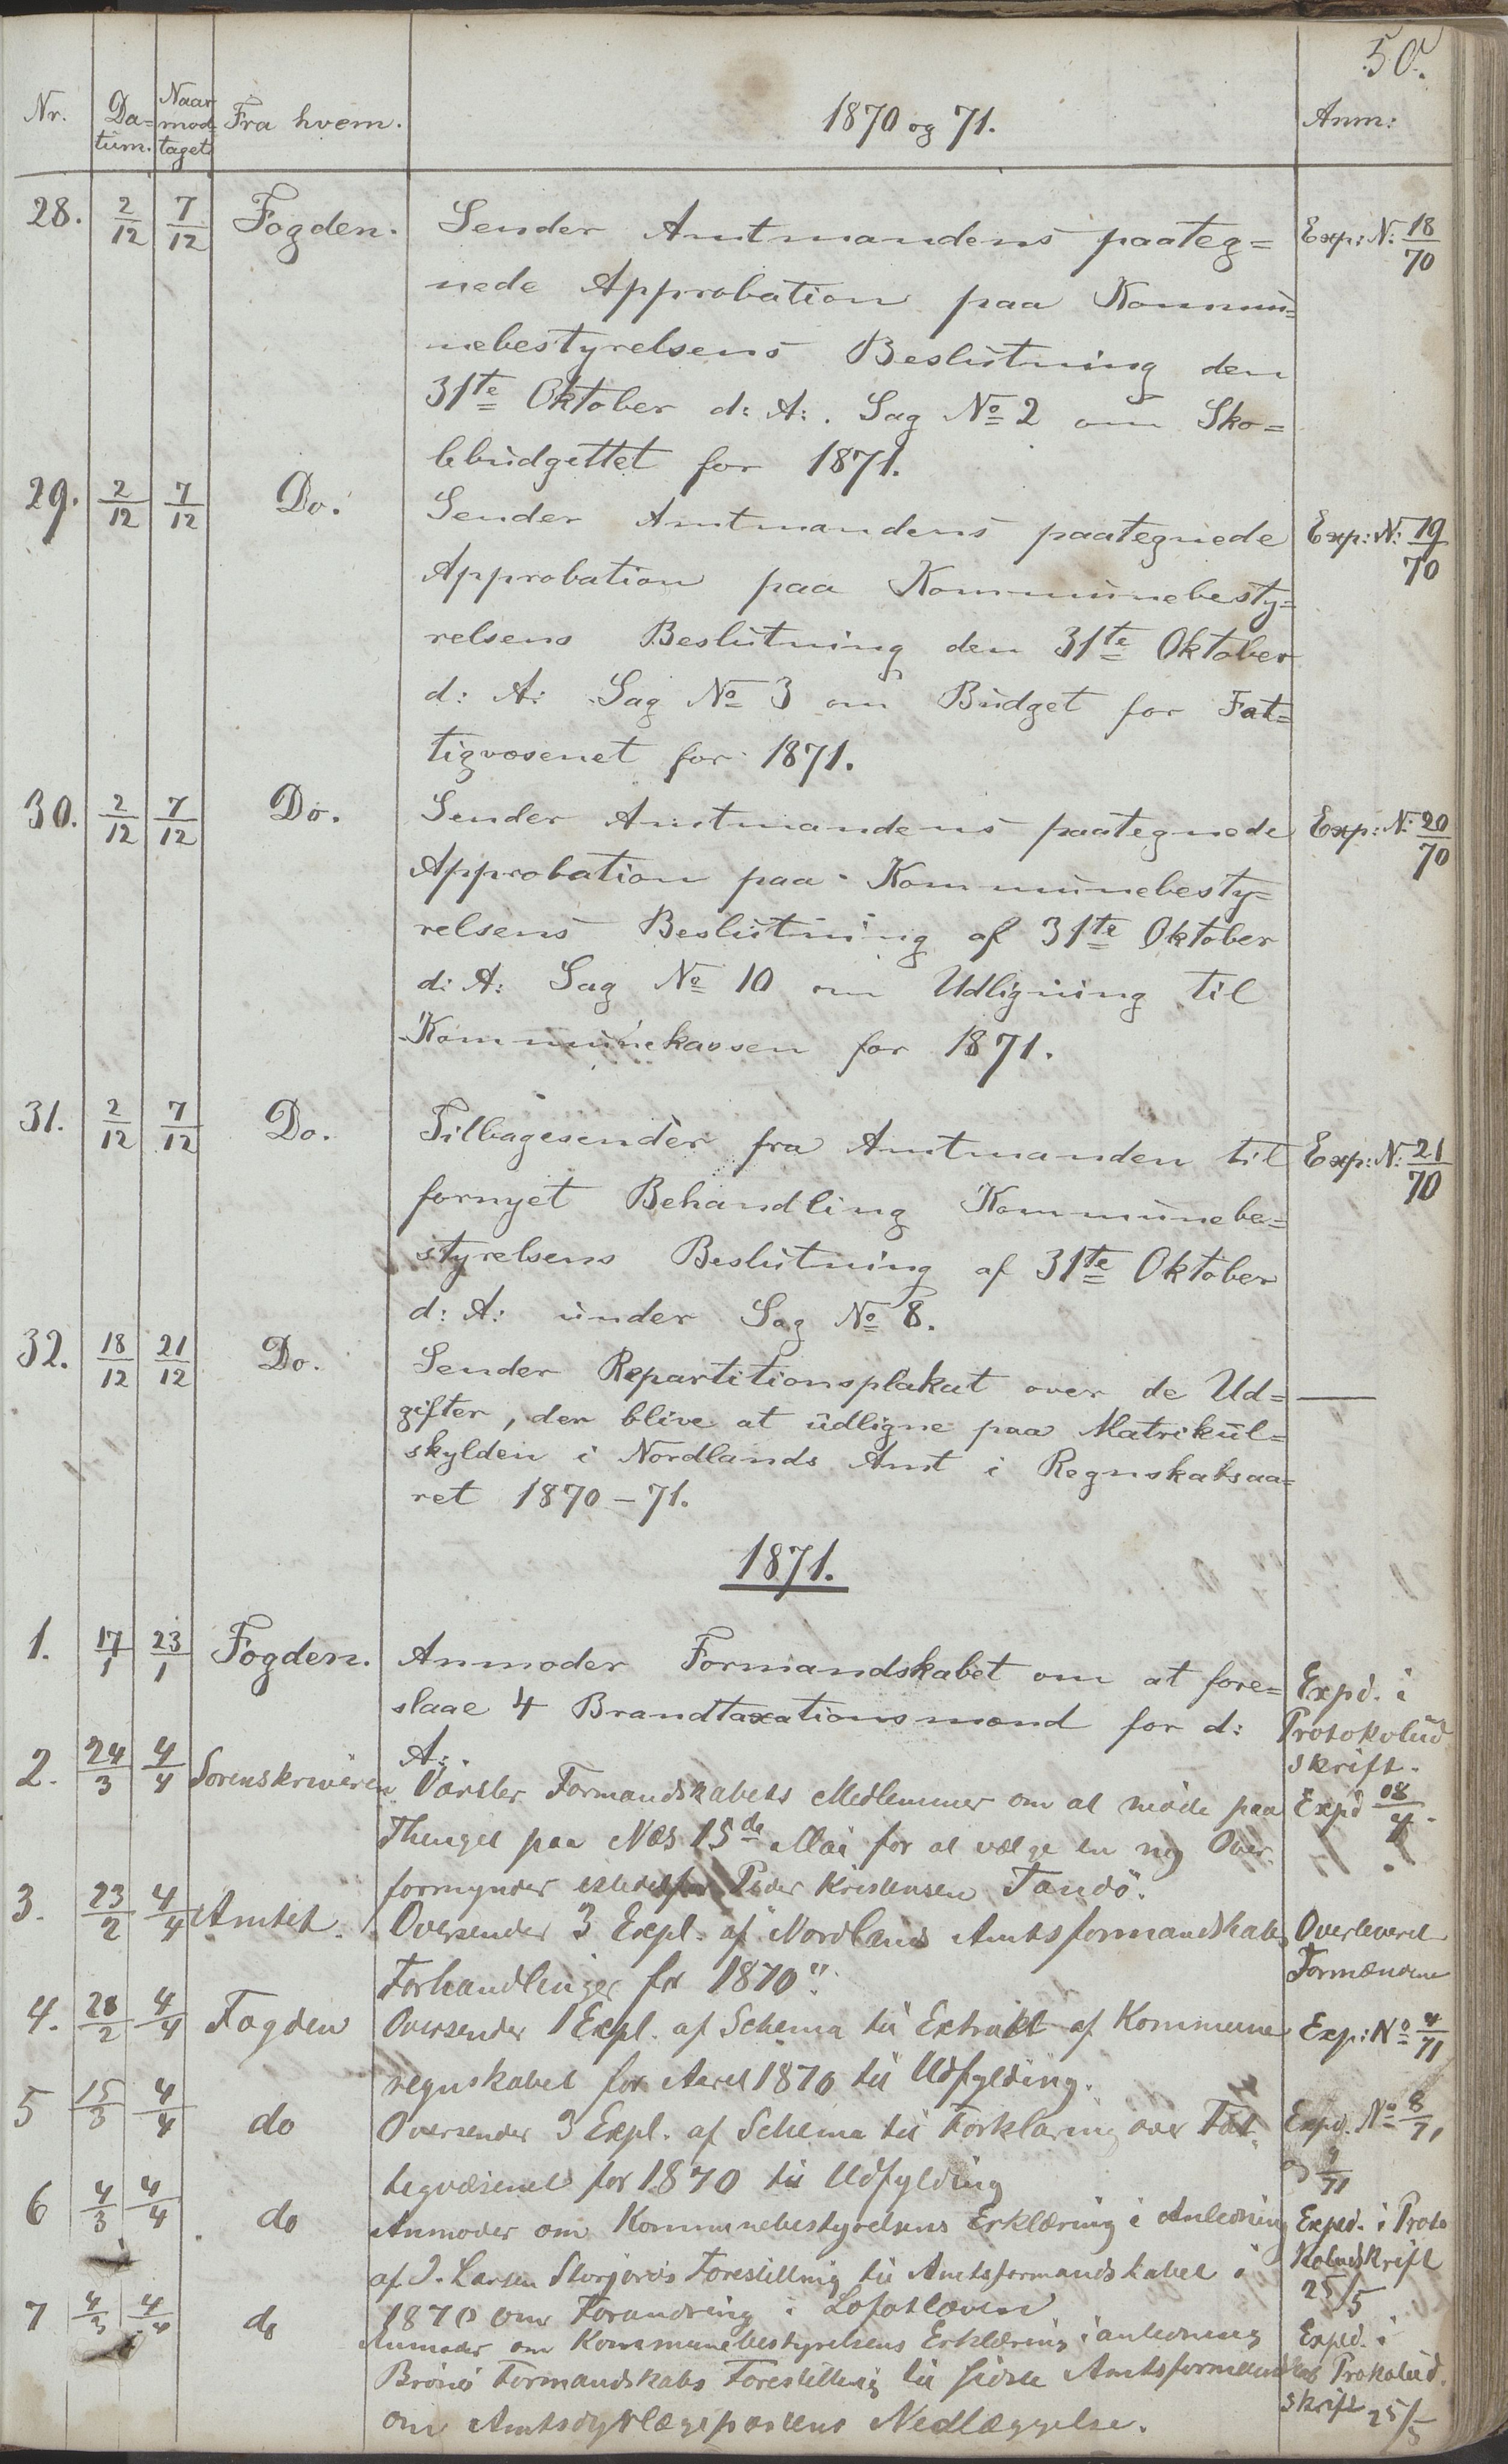 50.
Nr. Da= tum. Naar mod taget. Fra hvem. 1870 og 71. Anm:
28. 2/12 7/12 Fogden. Sender Amtmandens paateg= Exp: N: 18/70
nede Approbation paa Kommu=
nebestyrelsens Beslutning den
31te Oktober d: A:. Sag No 2 om Sko=
lebudgettet for 1871.
29. 2/12 7/12 Do. Sender Amtmandens paategnede Exp: N: 19/70
Approbation paa Kommunebesty=
relsens Beslutning den 31te Oktober
d: A: Sag No 3 om Budget for Fat=
tigvæsenet for 1871.
30. 2/12 7/12 Do. Sender Amtmandens paategnede Exp: N: 20/70
Approbation paa Kommunebesty=
relsens Beslutning af 31te Oktober
d: A: Sag No 10 om Udligning til
Kommunekassen for 1871.
31. 2/12 7/12 Do. Tilbagesender fra Amtmanden til Exp: N: 21/70
fornyet Behandling Kommunebe=
styrelsens Beslutning af 31te Oktober
d: A: under Sag No 8.
32. 18/12 21/12 Do. Sender Repartitionsplakat over de Ud= —
gifter, der blive at udligne paa Matrikul=
skylden i Nordlands Amt i Regnskabsaa=
ret 1870-71.
1871.
1. 17/1 23/1 Fogden. Anmoder Formandskabet om at fore= Expd. i
slaae 4 Brandtaxationsmænd for d: Protokolud
A:. skrift.
2. 24/3 4/4 Sorenskriveren Varsler Formandskabets Medlemmer om at møde paa Expd 08/4.
Thinget paa Næs 15de Mai for at vælge en ny Over
formynder istedetfor Peder Kristensen Tandö.
3. 23/2 4/4 Amtet. Oversender 3 Expl. af "Nordlands Amtsformandskabs Overleveret
Forhandlinger for 1870". Formændene
4. 28/2 4/4 Fogden Oversender 1 Expl. af Schema til Extrakt af Kommune Exp: No 4/71
regnskabet for Aaret 1870 til Udfylding.
5 15/3 4/4 do Oversender 3 Expl. af Schema til Forklaring over Fat= Expd. No 8/71
tigvæsenet for 1870 til Udfylding og 9/71
6 4/3 4/4 do Anmoder om Kommunebestyrelsens Erklæring i Anledning Exped. i Proto
af J. Larsen Storjords Forestilling til Amtsformandskabet i koludskrift
1870 om Forandring i Lofotloven 25/5
7 4/3 4/4 do Anmoder om Kommunebestyrelsens Erklæring i anledning Exped. i
Brönö Formandskabs Forestilling til sidste Amtsformandskab Protokolud.
om Amtsdyrlægepostens Nedlæggelse. skrift 25/5